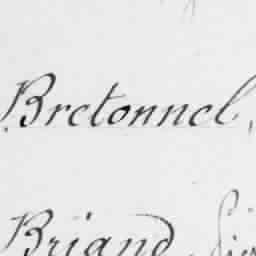 Bretonnel,
Briand,